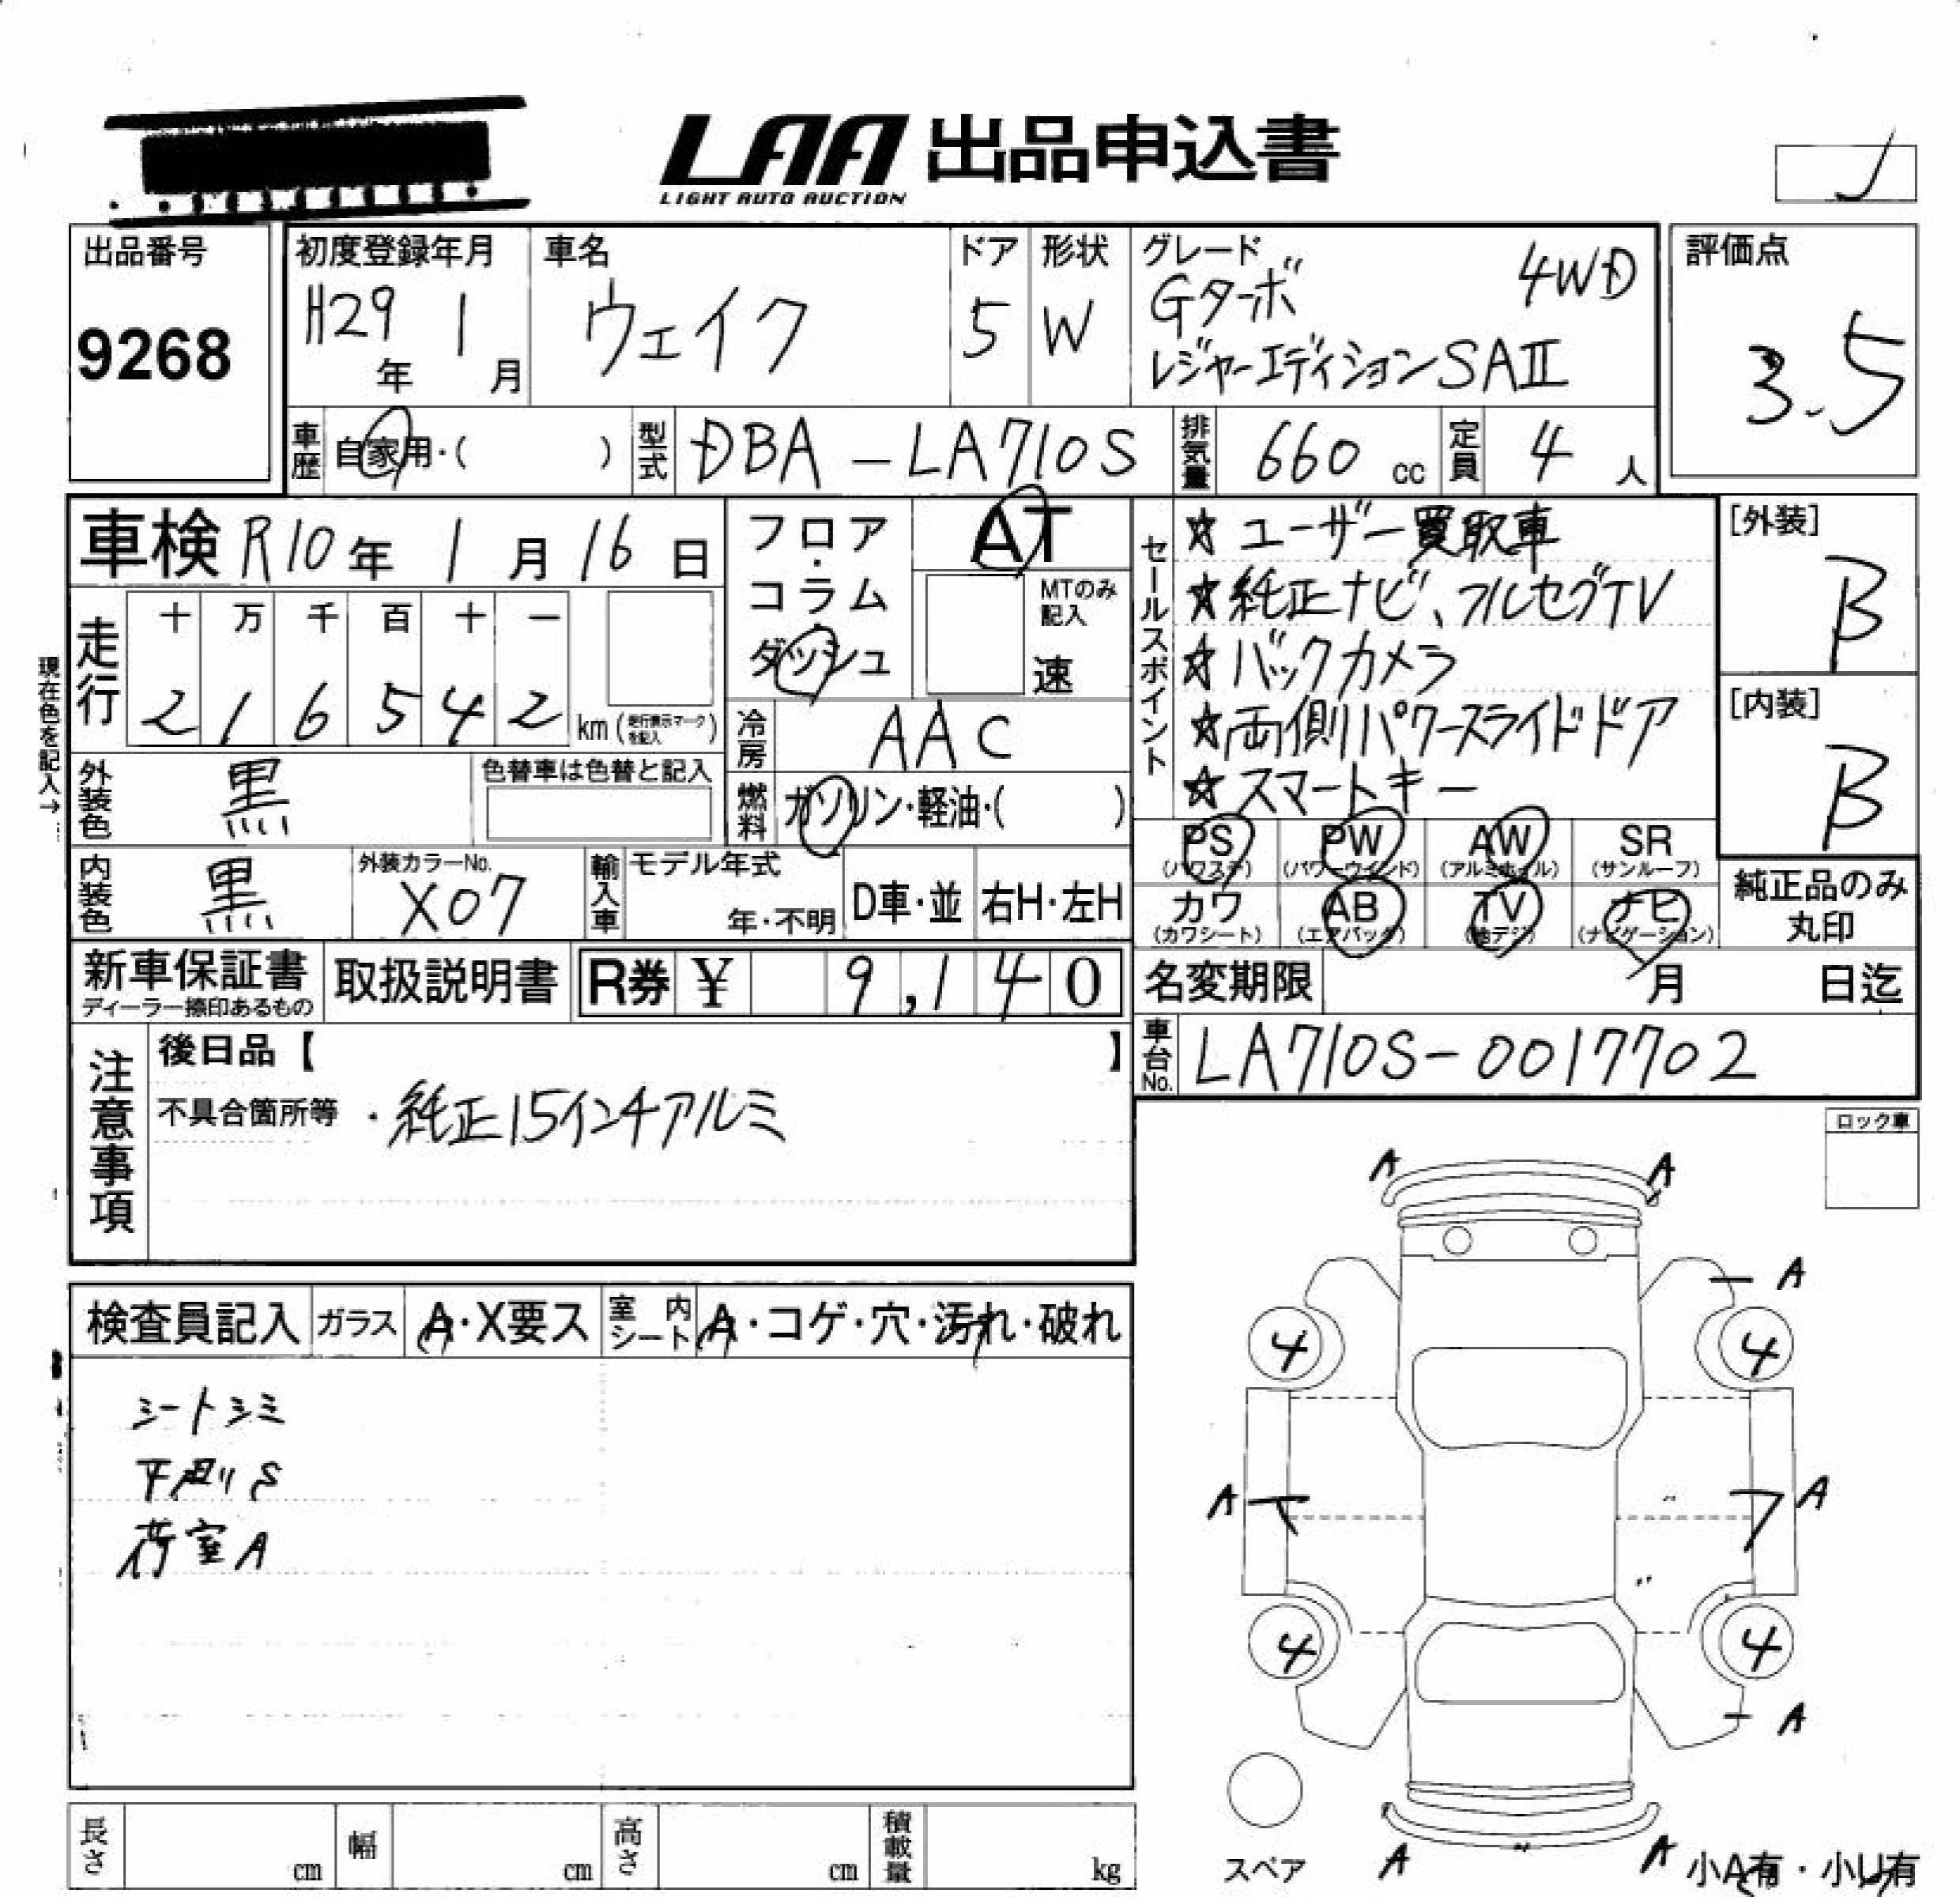 LAA 出品申込書
LIGHT AUTO AUCTION
出品番号
9268
初度登録年月
H29年 1月
車名
ウェイク
ドア
5
形状
W
グレード
Gターボ 4WD
レジャーエディションSAⅡ
評価点
3.5
車歴 自家用・( )
型式 DBA-LA710S
排気量 660 cc
定員 4 人
車検 R10年 1月 16日
フロア・コラム
ダッシュ
AT
MTのみ記入
速
走行
十 万 千 百 十 一
2 1 6 5 4 2 km (走行表示マークを記入)
冷房 AAC
現在色を記入→
外装色 黒
色替車は色替と記入
燃料 ガソリン・軽油・( )
内装色 黒
外装カラーNo.
X07
輸入車 モデル年式
年・不明
D車・並 右H・左H
セールスポイント
☆ ユーザー買取車
☆ 純正ナビ、フルセグTV
☆ バックカメラ
☆ 両側パワースライドドア
☆ スマートキー
[外装]
B
[内装]
B
PS PW AW SR
(パワステ) (パワーウインド) (アルミホイル) (サンルーフ)
カワ AB TV ナビ
(カワシート) (エアバック) (地デジ) (ナビゲーション)
純正品のみ
丸印
新車保証書
ディーラー捺印あるもの
取扱説明書
R券 ¥ 9,140
名変期限 月 日迄
車台No. LA710S-0017702
注意事項
後日品【 】
不具合箇所等 ・純正15インチアルミ
ロック車
検査員記入 ガラス A・X要ス
室内シート A・コゲ・穴・汚れ・破れ
シートシミ
下廻りS
荷室A
A A
A
4 4
A A
4 4
A
A A
スペア
小A有・小U有
長さ cm
幅 cm
高さ cm
積載量 kg